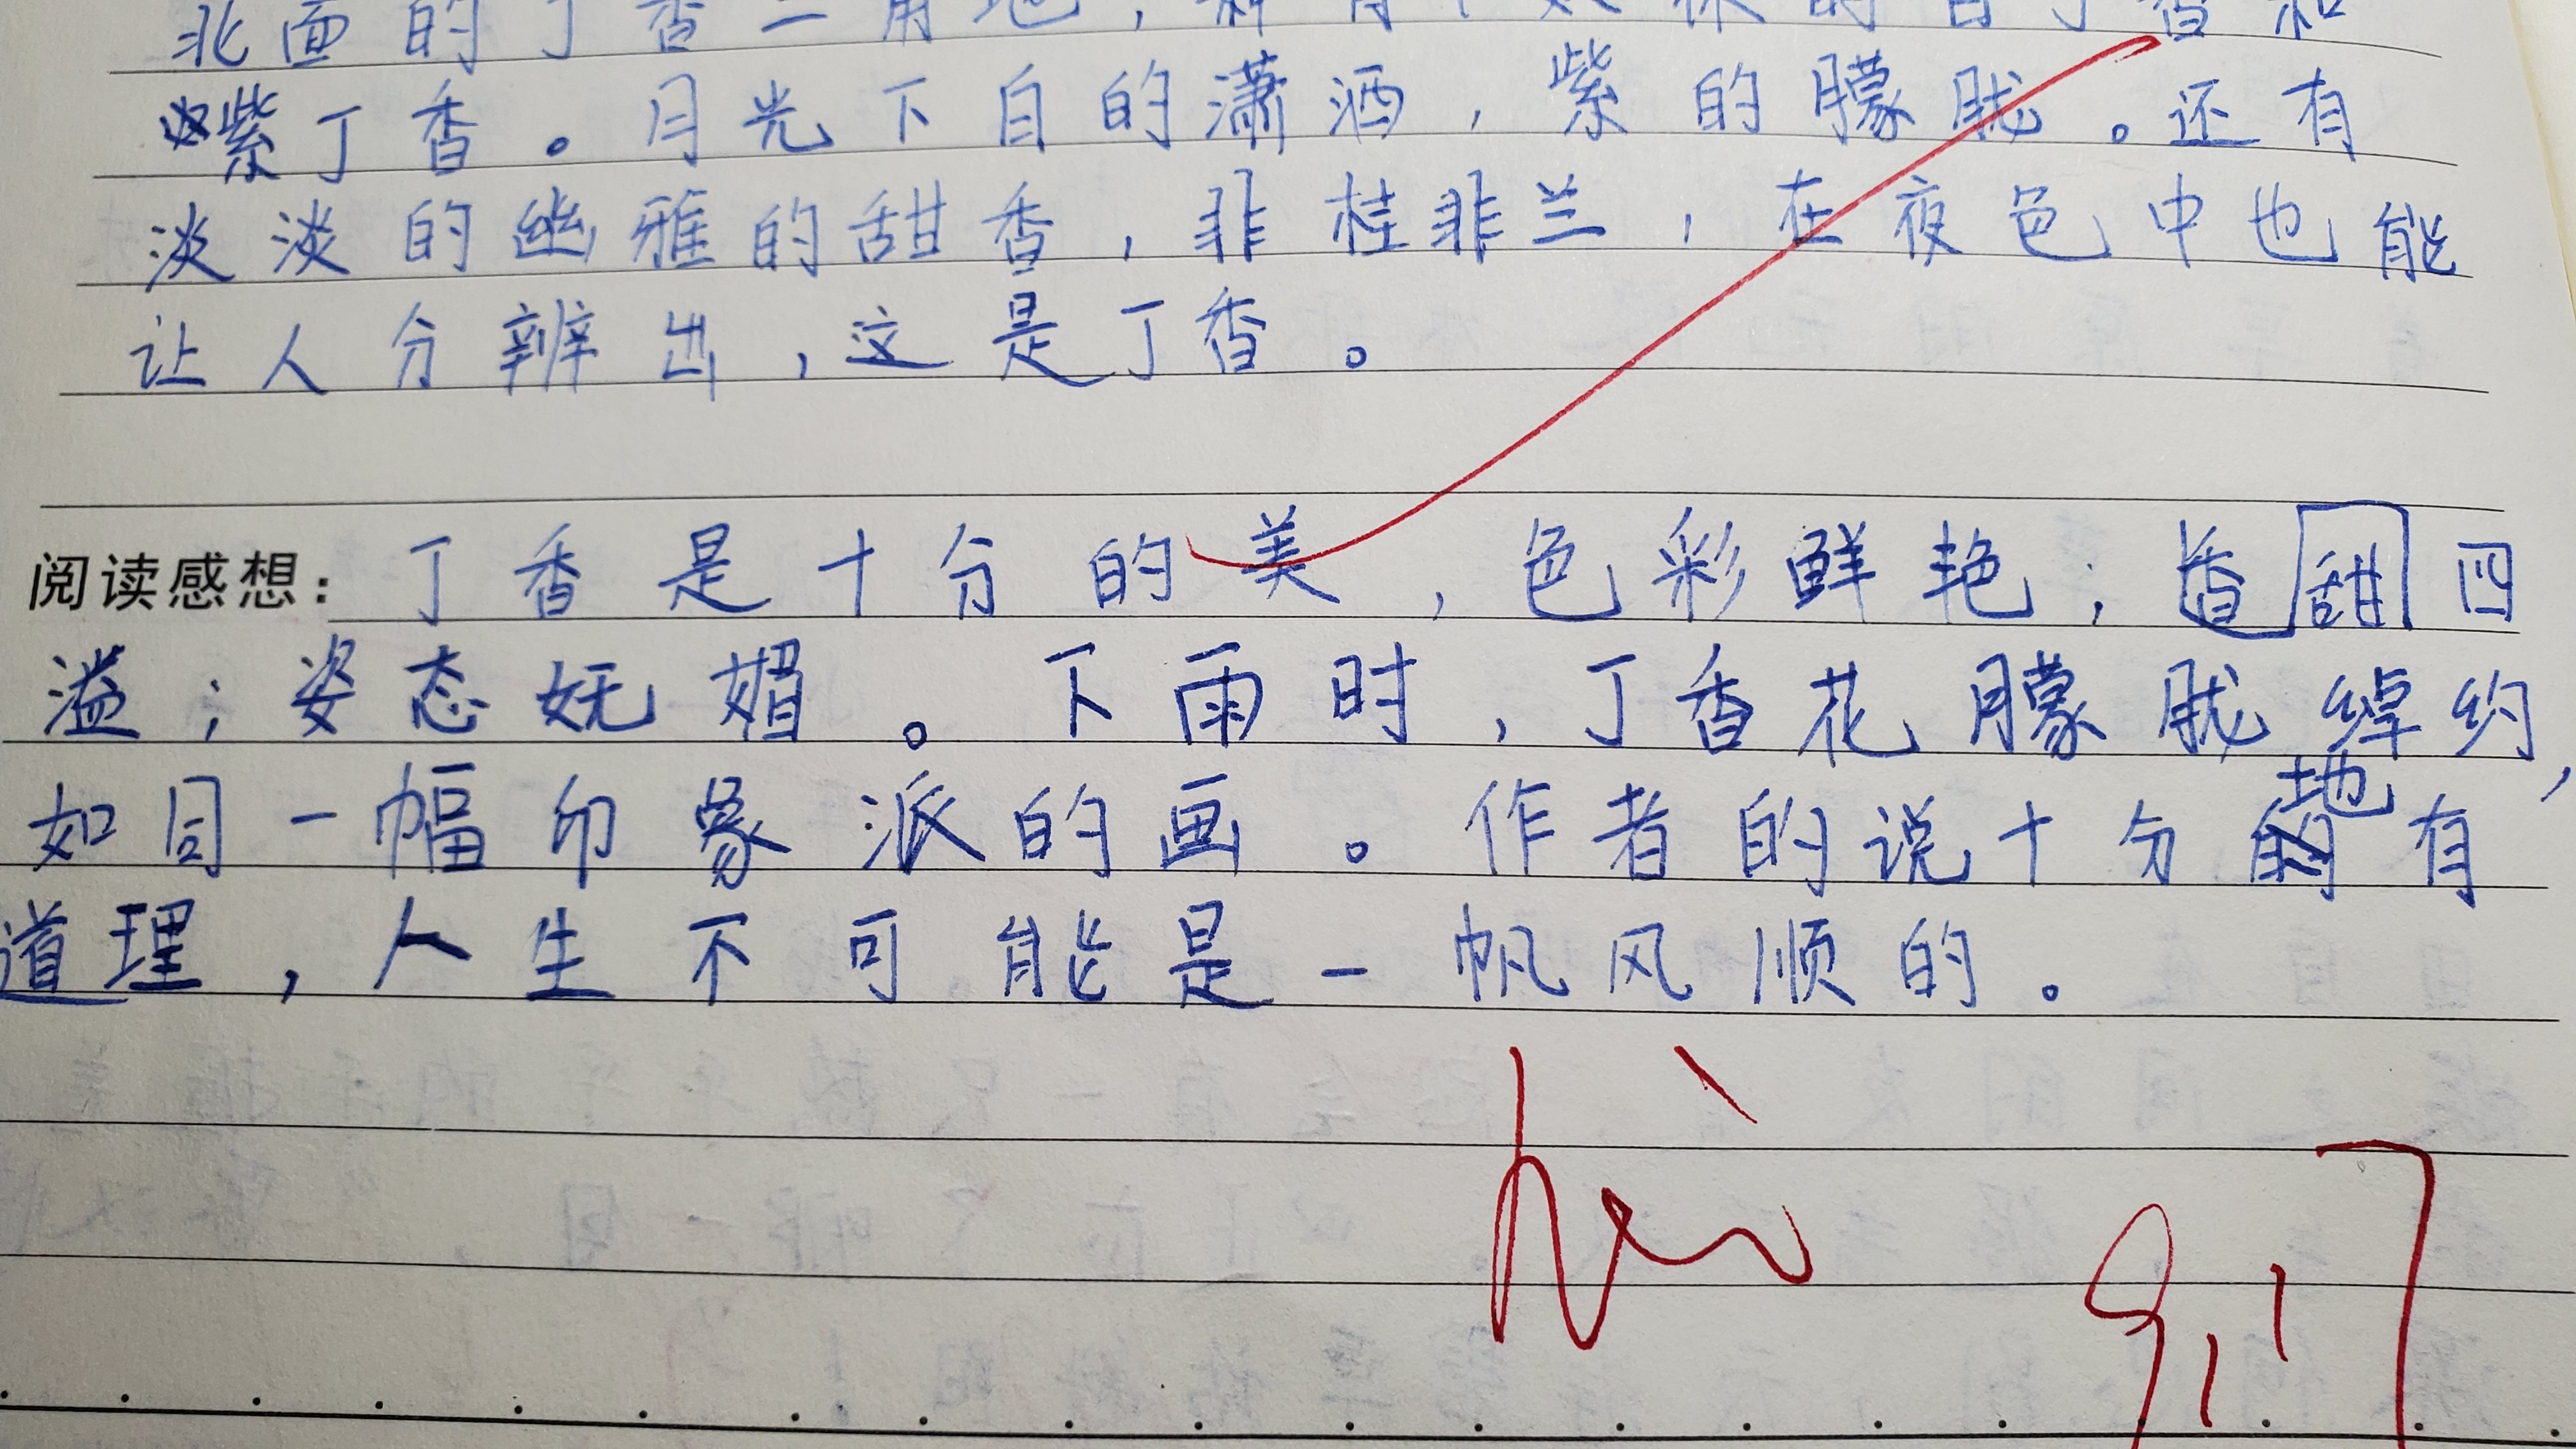 北面的丁香三角地，种有十数棵的白丁香和
紫丁香。月光下白的潇洒，紫的朦胧。还有
淡淡的幽雅的甜香，非桂非兰，在夜色中也能
让人分辨出，这是丁香。
阅读感想：丁香是十分的美，色彩鲜艳；香甜四
溢；姿态妩媚。下雨时，丁香花朦胧绰约，
如同一幅印象派的画。作者的说十分地有
道理，人生不可能是一帆风顺的。
9.17